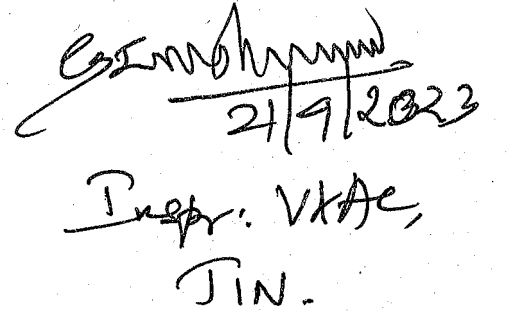 21/9/2023
Inspr. V&AC,
TIN.